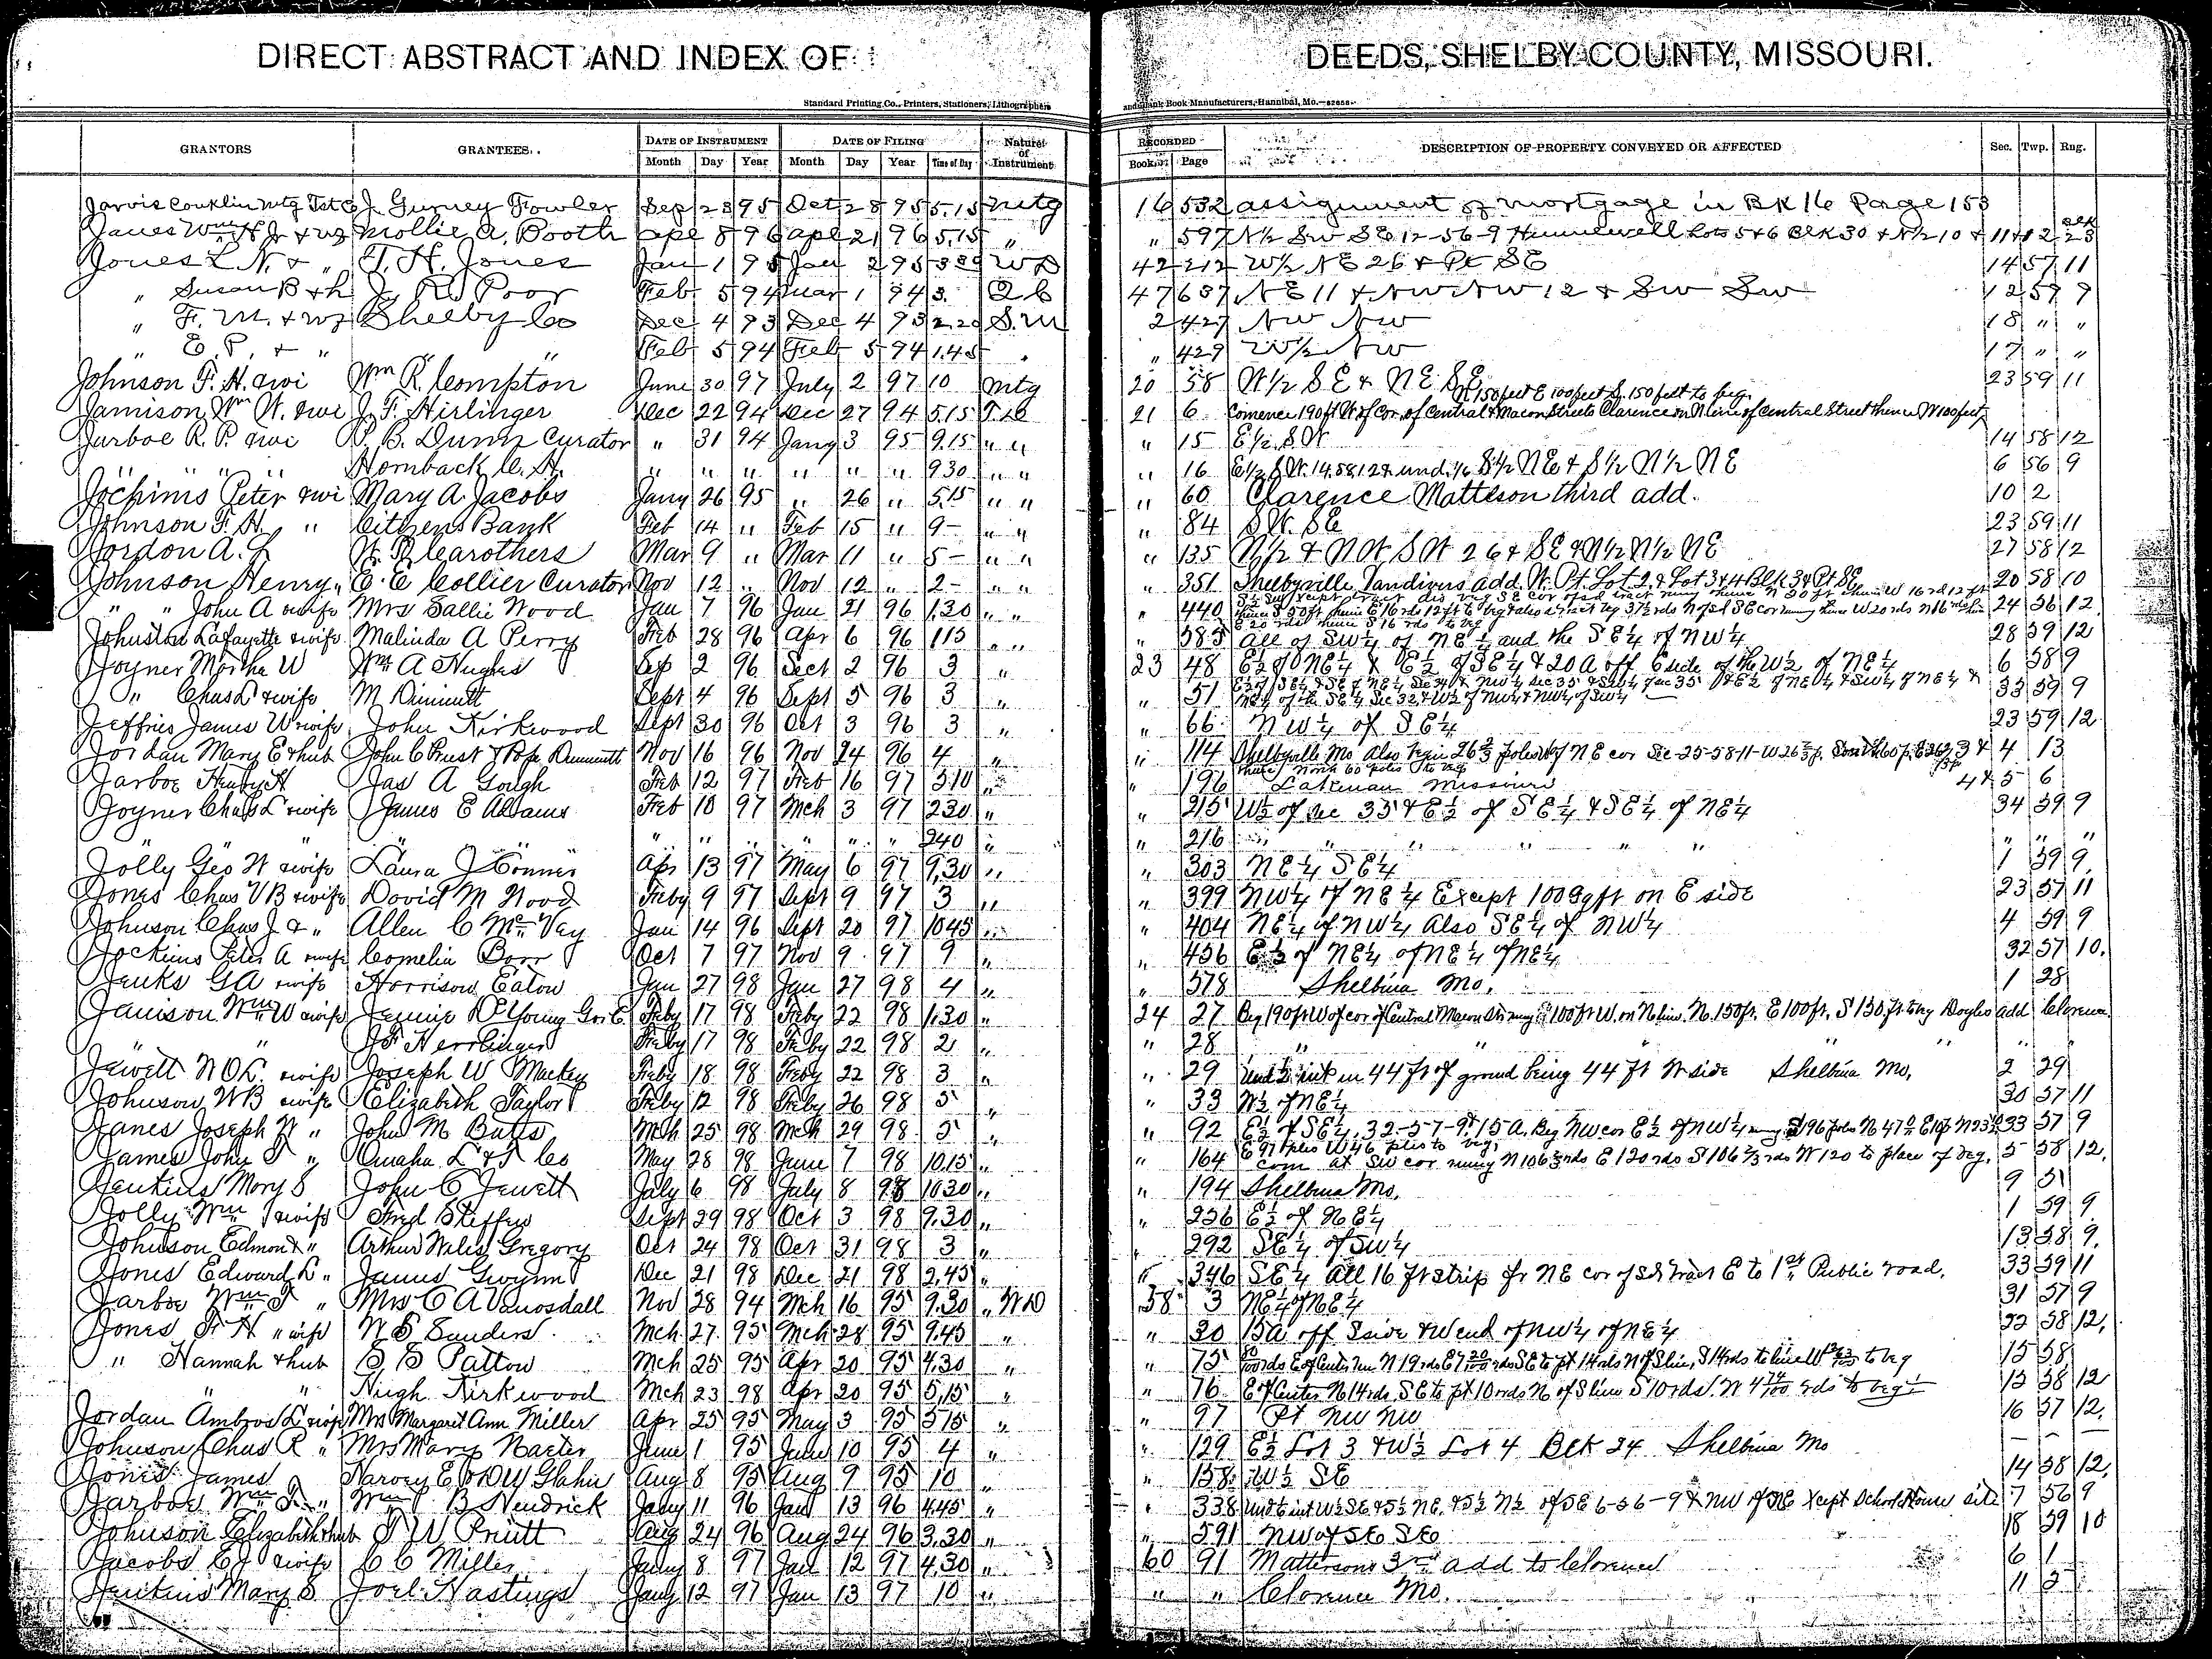 DIRECT ABSTRACT AND INDEX OF DEEDS, SHELBY COUNTY, MISSOURI.
Standard Printing Co., Printers, Stationers, Lithographers and Blank Book Manufacturers, Hannibal, Mo.
GRANTORS GRANTEES. DATE OF INSTRUMENT DATE OF FILING Nature of Instrument RECORDED DESCRIPTION OF PROPERTY CONVEYED OR AFFECTED Sec. Twp. Rng.
Month Day Year Month Day Year Time of Day Book Page
Jarvis Conklin Mtg Tst Co J. Gurney Fowler Sep 28 95 Oct 28 95 5.15 Mtg 16 532 assignment of mortgage in BK 16 Page 153
Janes Wm H Jr & wf Mollie A. Booth Apl 8 96 Apl 21 96 5.15 " " 597 N½ SW SE 12-56-9 Hunnewell Lots 5 & 6 Blk 30 & N½ 10 & 11 & 12 Blk 23
Jones L. N. & " T. H. Jones Jan 1 95 Jan 2 95 WD 42 212 W½ NE 26 & Pt SE 14 57 11
" Susan B & h J. R. Poor Feb 5 94 Mar 1 94 3. Q C 47 637 NE 11 & NW NW 12 & SW SW 12 57 9
" F. M. & wf Shelby Co Dec 4 93 Dec 4 93 2.20 S.M 2 427 NW NW 18 " "
" E. P. & " " Feb 5 94 Feb 5 94 1.45 " " 429 W½ NW 17 " "
Johnson F. H. & wi Wm R. Compton June 30 97 July 2 97 10 Mtg 20 58 W½ SE & NE SE 23 59 11
N 150 feet E 100 feet S. 150 feet to beg.
Jamison Wm W. & wi J. F. Hirlinger Dec 22 94 Dec 27 94 5.15 21 6 Comence 190 ft W of Cor. of Central & Macon Streets Clarence on N line of Central Street thence W 100 feet
Jarboe R. P. & wi P. B. Dunn Curator " 31 94 Jany 3 95 9.15 " " " 15 E½ SW 14 58 12
" " " " Hornback C. H. " " " " " " 930 " " " 16 E½ SW. 14.58.12 & und. 1/6 S½ NE & S½ N½ NE 6 56 9
Jochims Peter & wi Mary A Jacobs Jany 26 95 " 26 " 5.15 " " " 60 Clarence Matteson third add. 10 2
Johnson F. H. " Citizens Bank Feb 14 " Feb 15 " 9- " " " 84 SW. SE 23 59 11
Jordon A. J. W. R. Carothers Mar 9 " Mar 11 " 5- " " " 135 N½ & NW SW 26 & SE & N½ N½ NE 27 58 12
Johnson Henry " E. E Collier Curator Nov 12 " Nov 12 " 2- " " " 351 Shelbyville, Vandivers add. W. Pt. Lot 2 & Lot 3 & 4 Blk 3 & Pt SE 20 58 10
" " John A & wife Mrs Sallie Wood Jan 7 96 Jan 21 96 1.30 " " " 440 24 56 12
Johnston Lafayette & wife Malinda A Perry Feb 28 96 Apr 6 96 115 " " " 585 all of SW¼ of NE¼ and the SE¼ of NW¼ 28 59 12
Joyner Martha W Wm A Hughes Sep 2 96 Sept 2 96 3 " 23 48 E½ of NE¼ & E½ of SE¼ & 20 A off E side of the W½ of NE¼ 6 58 9
" Chas L & wife M Dimmitt Sept 4 96 Sept 5 96 3 " " 51 33 59 9
Jeffries James W & wife John Kirkwood Sept 30 96 Oct 3 96 3 " " 66 NW¼ of SE¼ 23 59 12
Jordan Mary E & hub John C Prust & Pope Dimmitt Nov 16 96 Nov 24 96 4 " " 114 Shelbyville Mo Also begin 26⅔ poles W of NE cor Sec-25-58-11- 3 & 4 13
thence North 60 poles to beg
Jarboe Henry H Jas A Gough Feb 12 97 Feb 16 97 510 " " 196 Lakenan Missouri 4 & 5 6
Joyner Chas L & wife James E Adams Feb 10 97 Mch 3 97 230 " " 215 W½ of Sec 35 & E½ of SE¼ & SE¼ of NE¼ 34 59 9
" " " " " " " 240 " " 216 " " " " " " "
Jolly Geo W & wife Laura J Conner Apr 13 97 May 6 97 9.30 " " 303 NE¼ SE¼ 1 59 9
Jones Chas V B & wife David M Wood Feby 9 97 Sept 9 97 3 " " 399 NW¼ of NE¼ Except 100 Sq ft on E side 23 57 11
Johnson Chas J. & " Allen C McVey Jan 14 96 Sept 20 97 1045 " " 404 NE¼ of NW¼ Also SE¼ of NW¼ 4 59 9
Jockims Peter A & wife Cornelia Dorr Oct 7 97 Nov 9 97 9 " " 456 E½ of NE¼ of NE¼ of NE¼ 32 57 10.
Jenks G A & wife Harrison Eaton Jan 27 98 Jan 27 98 4 " " 578 Shelbina Mo. 1 28
Jamison Wm W & wife Jennie DeYoung Feby 17 98 Feby 22 98 1.30 " 24 27 Beg 190 ft W of cor of Central Macon Sts 100 ft W. on N line. N. 150 ft. E 100 ft. S 150 ft to beg Doyles add Clarence
" " J F Herrlinger Feby 17 98 Feby 22 98 2 " " 28 " " " "
Jewett W O L & wife Joseph W Mackey Feby 18 98 Feby 22 98 3 " " 29 Und ½ int in 44 ft of ground being 44 ft W side Shelbina Mo. 2 29
Johnson W B & wife Elizabeth Taylor Feby 12 98 Feby 26 98 5 " " 33 W½ of NE¼ 30 57 11
Janes Joseph W " John M Butts Mch 25 98 Mch 29 98 5 " " 92 E½ of SE¼ 32-57-9. 15 A. Beg NW cor E½ of NW¼ 33 57 9
James John T " Omaha L & T Co May 28 98 June 7 98 10.15 " " 164 com at SW cor runing N 106⅔ rds E 120 rds S 106⅔ rds W 120 to place of beg. 5 58 12.
Jenkins Mary S John C Jewett July 6 98 July 8 98 1030 " " 194 Shelbina Mo. 9 51
Jolly Wm & wife Fred Steffes Sept 29 98 Oct 3 98 9.30 " " 256 E½ of NE¼ 1 59 9
Johnson Edmond " Arthur Wales Gregory Oct 24 98 Oct 31 98 3 " " 292 SE¼ of SW¼ 13 58 9.
Jones Edward L " James Gwynn Dec 21 98 Dec 21 98 2.45 " " 346 SE¼ all 16 ft strip fr NE cor of sd tract E to 1st Public road. 33 59 11
Jarboe Wm T " Mrs C A Vanosdall Nov 28 94 Mch 16 95 9.30 " WD 58 3 NE¼ of NE¼ 31 57 9
Jones & wife W S Sanders Mch 27 95 Mch 28 95 9.45 " " 30 15 a off S side & W end of NW¼ of NE¼ 22 58 12.
" Hannah & hub B. B Patton Mch 25 95 Apr 20 95 4.30 " " 75 15 58
" " Hugh Kirkwood Mch 23 98 Apr 20 95 5.15 " " 76 E of Center N 14 rds. SE to pt 10 rds N of S line S 10 rds. W 4 74/100 rds to beg 15 58 12
Jordan Ambros L & wife Mrs Margaret Ann Miller Apr 25 95 May 3 95 515 " " 97 Pt NW NW 16 57 12.
Johnson Chas R " Mrs Mary Narter June 1 95 June 10 95 4 " " 129 E½ Lot 3 & W½ Lot 4 Blk 24 Shelbina Mo
Jones James Harvey E & D W Glahn Aug 8 95 Aug 9 95 10 " " 158 W½ SE 14 58 12.
Jarboe Wm T " Wm B Hendrick Jany 11 96 Jan 13 96 4.45 " " 338 of SE 6-56-9 & NW of NE Xcept School House site 7 56 9
Johnson Elizabeth & hub J W Pruitt Aug 24 96 Aug 24 96 3.30 " " 591 NW of SE SE 18 59 10
Jacobs C J & wife C C Miller Jany 8 97 Jan 12 97 4.30 " 60 91 Mattersons 3rd add to Clarence 6 1
Jenkins Mary S Joel Hastings Jany 12 97 Jan 13 97 10 " " " Clarence Mo. 11 5